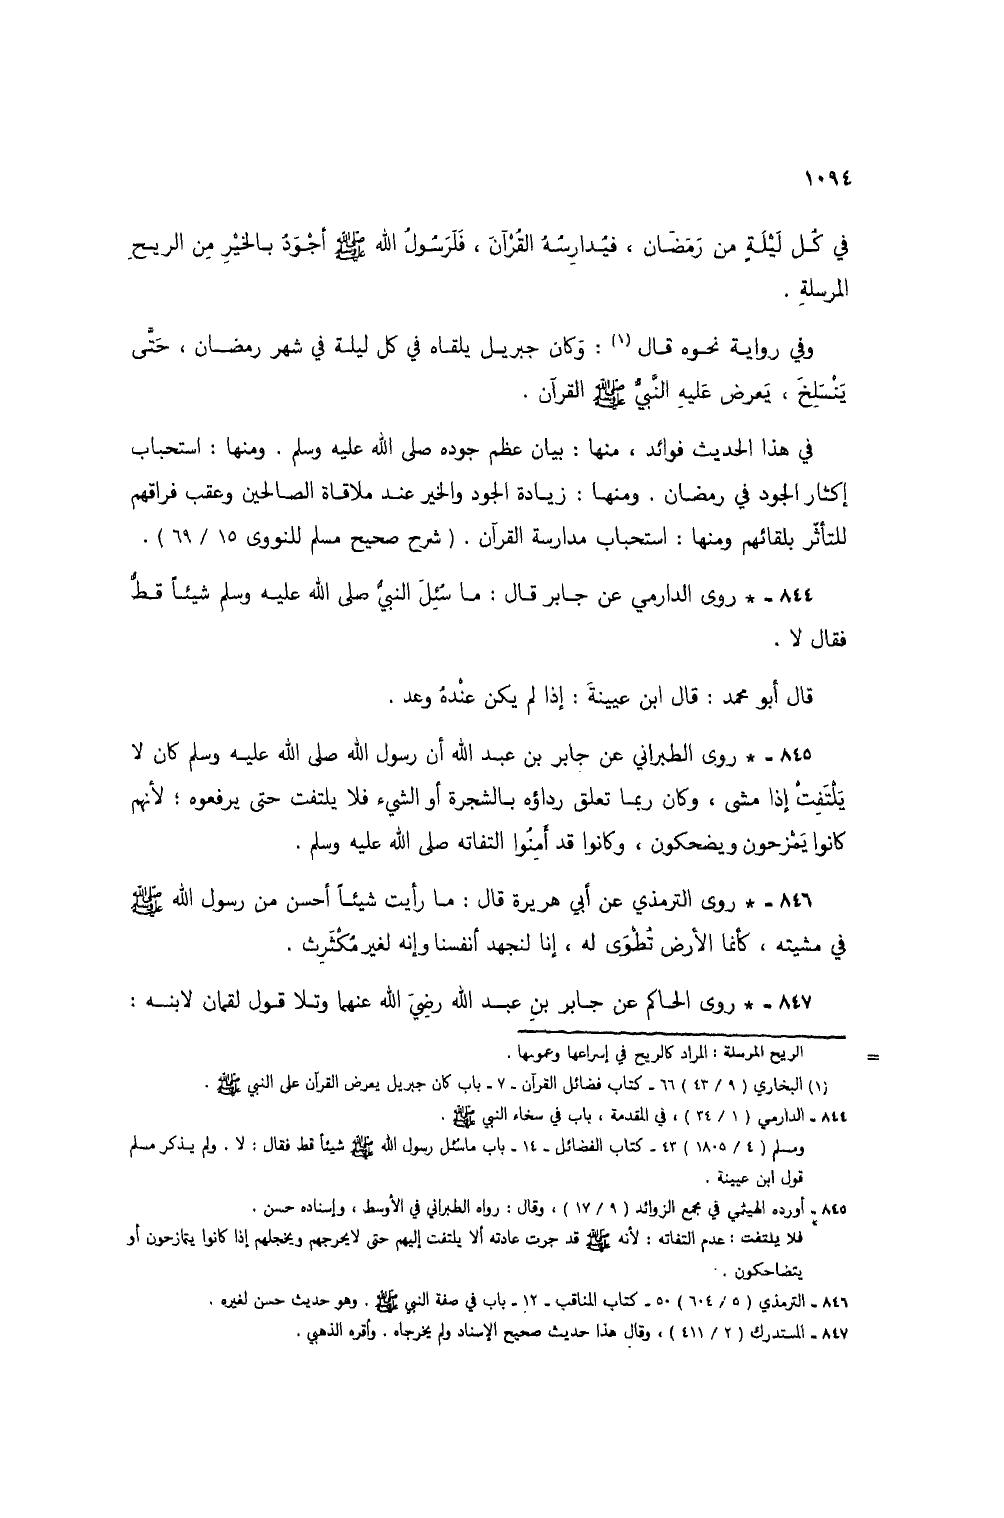 ١٠٩٤
في كُل لَيْلَةٍ من رَمَضَان ، فيُدارِسُهُ القُرْآنَ ، فَلَرَسُولُ الله ﷺ أجْوَدُ بالخَيْرِ مِن الريح
المرسلةِ .
وفي رواية نحوه قال (١) : وَكان جبريل يلقاه في كل ليلة في شهر رمضان ، حَتَّى
يَنْسَلِخَ ، يَعرض عَليهِ النَّبيُّ ﷺ القرآن .
في هذا الحديث فوائد ، منها : بيان عظم جوده صلى الله عليه وسلم . ومنها : استحباب
إكثار الجود في رمضان . ومنها : زيادة الجود والخير عند ملاقاة الصالحين وعقب فراقهم
للتأثّر بلقائهم ومنها : استحباب مدارسة القرآن . ( شرح صحيح مسلم للنووى ١٥ / ٦٩ ) .
٨٤٤ - * روى الدارمي عن جابر قال : ما سُئِلَ النبيُّ صلى الله عليه وسلم شيئاً قطُّ
فقال لا .
قال أبو محمد : قال ابن عيينةَ : إذا لم يكن عنْدهُ وعد .
٨٤٥ - * روى الطبراني عن جابر بن عبد الله أن رسول الله صلى الله عليه وسلم كان لا
يَلْتَفِتُ إذا مشى ، وكان ربما تعلق رداؤه بالشجرة أو الشيء فلا يلتفت حتى يرفعوه ؛ لأنهم
كانوا يَمْزحون ويضحكون ، وكانوا قد أَمِنُوا التفاته صلى الله عليه وسلم .
٨٤٦ - * روى الترمذي عن أبي هريرة قال : ما رأيت شيئاً أحسن من رسول الله ﷺ
في مشيته ، كأنما الأرض تُطْوَى له ، إنا لنجهد أنفسنا وإنه لغير مُكْتَرِث .
٨٤٧ - * روى الحاكم عن جابر بنِ عبد الله رضِيَ الله عنهما وتلا قول لقمان لابنه :
= الريح المرسلة : المراد كالريح في إسراعها وعمومها .
(١) البخاري ( ٩ / ٤٣ ) ٦٦ - كتاب فضائل القرآن - ٧ - باب كان جبريل يعرض القرآن على النبي ﷺ .
٨٤٤ - الدارمي ( ١ / ٣٤ ) ، في المقدمة ، باب في سخاء النبي ﷺ .
ومسلم ( ٤ / ١٨٠٥ ) ٤٣ - كتاب الفضائل - ١٤ - باب ماسُئل رسول الله ﷺ شيئاً قط فقال : لا . ولم يذكر مسلم
قول ابن عيينة .
٨٤٥ - أورده الهيثمي في مجمع الزوائد ( ٩ / ١٧ ) ، وقال : رواه الطبراني في الأوسط ، وإسناده حسن .
فلا يلتفت : عدم التفاته : لأنه ﷺ قد جرت عادته ألا يلتفت إليهم حتى لايحرجهم ويخجلهم إذا كانوا يتمازحون أو
يتضاحكون .
٨٤٦ - الترمذي ( ٥ / ٦٠٤ ) ٥٠ - كتاب المناقب - ١٢ - باب في صفة النبي ﷺ . وهو حديث حسن لغيره .
٨٤٧ - المستدرك ( ٢ / ٤١١ ) ، وقال هذا حديث صحيح الإسناد ولم يخرجاه . وأقره الذهبي .